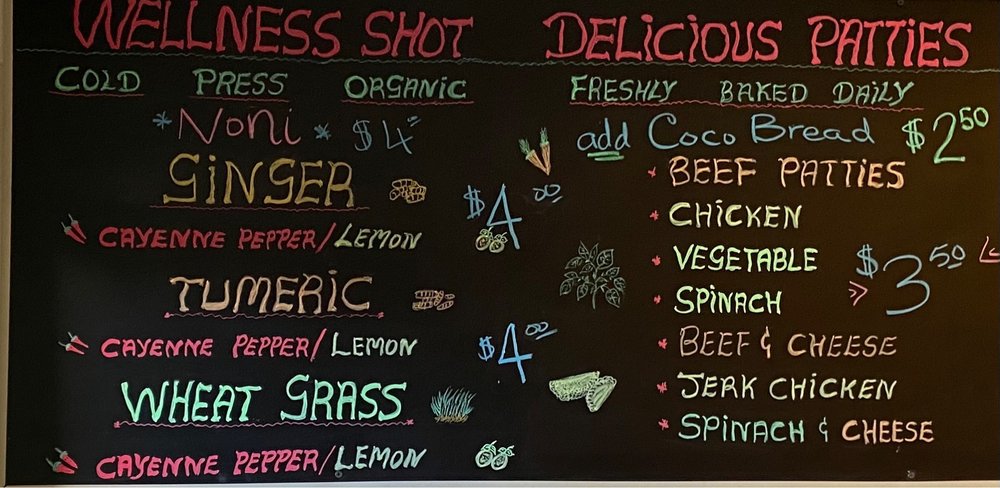 WELLNESS SHOT
COLD PRESS ORGANIC
*Noni* $4
GiNGER
$4.00
CAYENNE PEPPER/LEMON
TUMERiC
CAYENNE PEPPER/LEMON
$4.00
WHEAT GRASS
CAYENNE PEPPER/LEMON
DELiCiOUS PATTiES
FRESHLY BAKED DAiLY
add Coco Bread $2.50
* BEEF PATTiES
* CHiCKEN
* VEGETABLE
$3.50
* SPiNACH
* BEEF & CHEESE
* JERK CHiCKEN
* SPiNACH & CHEESE